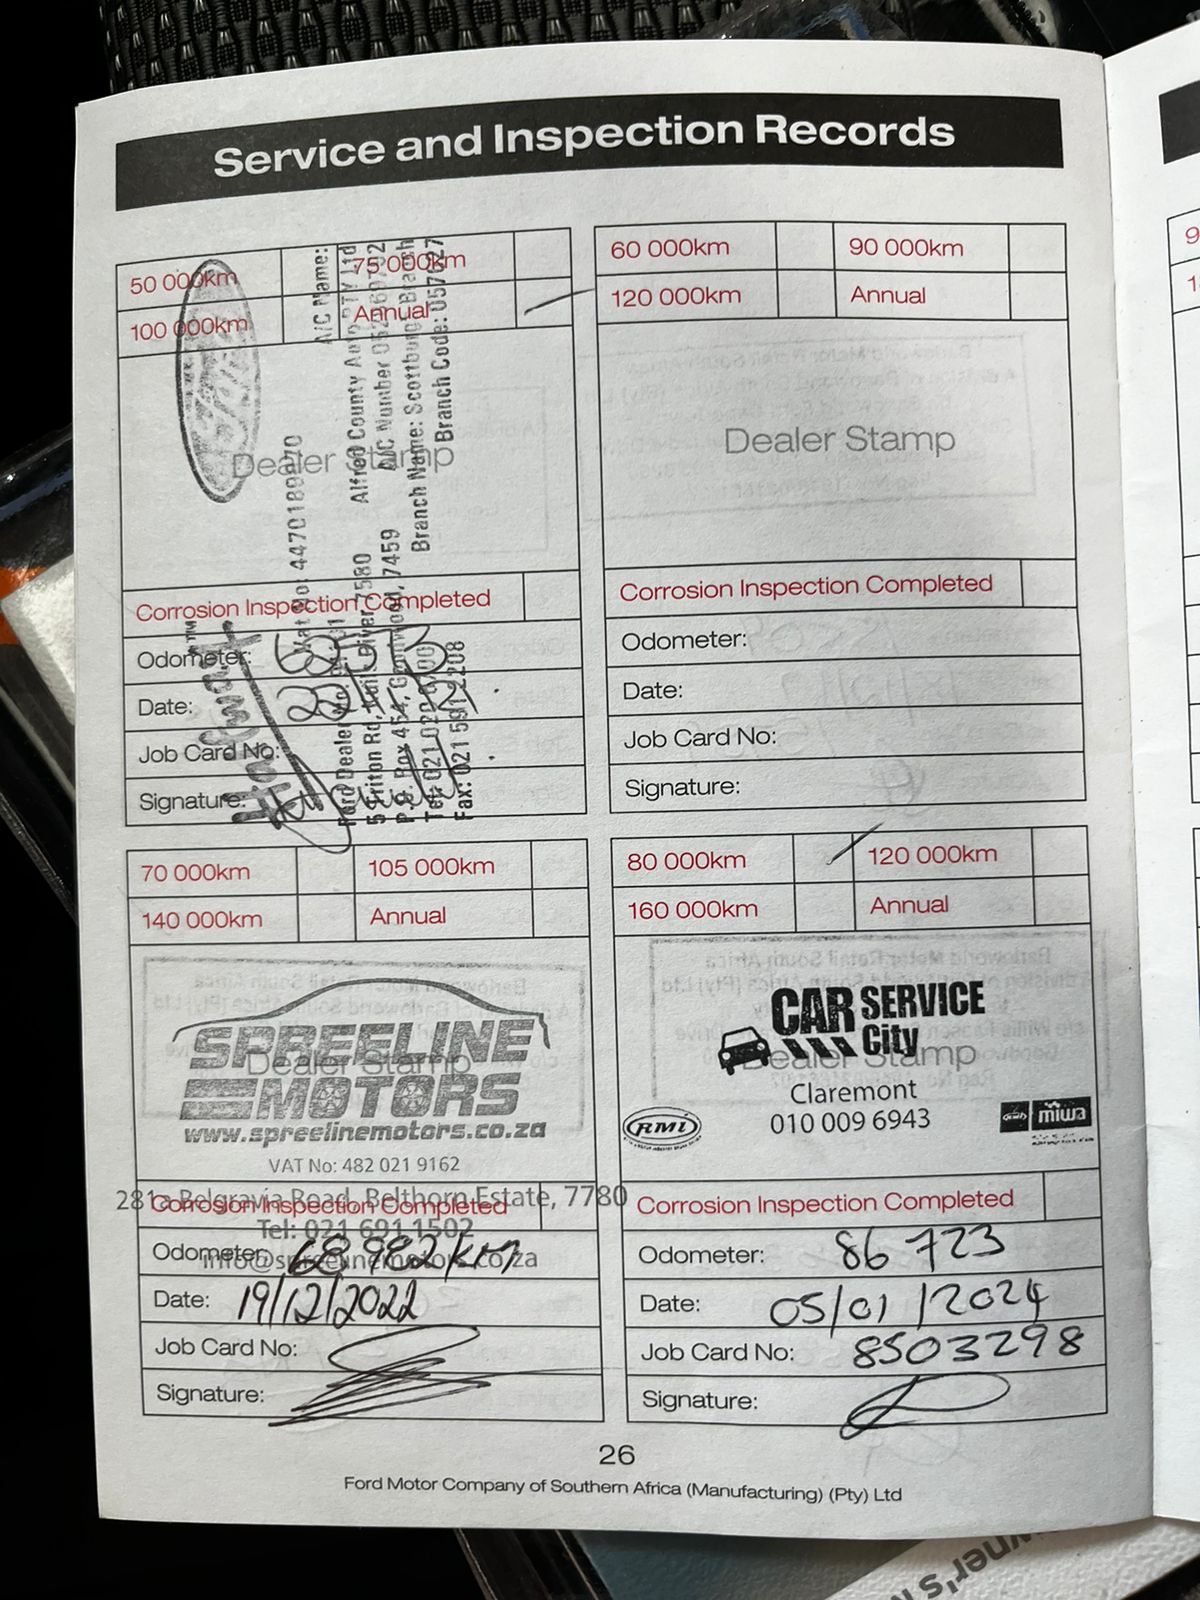 Service and Inspection Records
50 000km
75 000km
100 000km
Annual
Dealer Stamp
A/C Name:
Vat No: 4470189970
Alfred County Auto PTY Ltd
A/C Number
Branch Name: Scottburg Branch
Branch Code: 057827
Ford Dealer
Kuils River, 7580
P.O. Box 454, Goodwood, 7459
Tel: 021 020 9700
Fax: 021 591 2208
Corrosion Inspection Completed
Odometer:
Date:
Job Card No:
Signature:
60 000km
90 000km
120 000km
Annual
Dealer Stamp
Corrosion Inspection Completed
Odometer:
Date:
Job Card No:
Signature:
70 000km
105 000km
140 000km
Annual
Dealer Stamp
SPREELINE
MOTORS
www.spreelinemotors.co.za
VAT No: 482 021 9162
281a Belgravia Road, Belthorn Estate, 7780
Corrosion Inspection Completed
Tel: 021 691 1502
info@spreelinemotors.co.za
Odometer: 68 982 km
Date: 19/12/2022
Job Card No:
Signature:
80 000km
120 000km
160 000km
Annual
CAR SERVICE
City
Dealer Stamp
Claremont
010 009 6943
RMI
miwa
Corrosion Inspection Completed
Odometer: 86 723
Date: 05/01/2024
Job Card No: 8503298
Signature:
26
Ford Motor Company of Southern Africa (Manufacturing) (Pty) Ltd